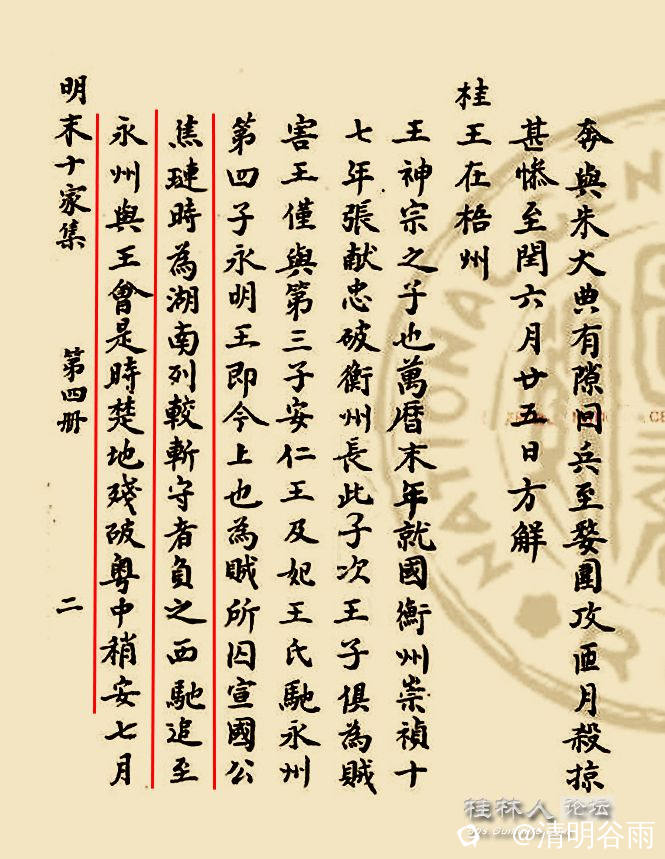 奔與朱大典有隙回兵至婺圍攻匝月殺掠
甚慘至閏六月廿五日方解
桂王在梧州
王神宗之子也萬曆末年就國衡州崇禎十
七年張献忠破衡州長此子次王子俱為賊
害王僅與第三子安仁王及妃王氏馳永州
第四子永明王即今上也為賊所囚宣國公
焦璉時為湖南列較斬守者負之西馳追至
永州與王會是時楚地殘破粵中稍安七月
明末十家集 第四册 二
NATIONAL CEN
桂林人论坛
@清明谷雨